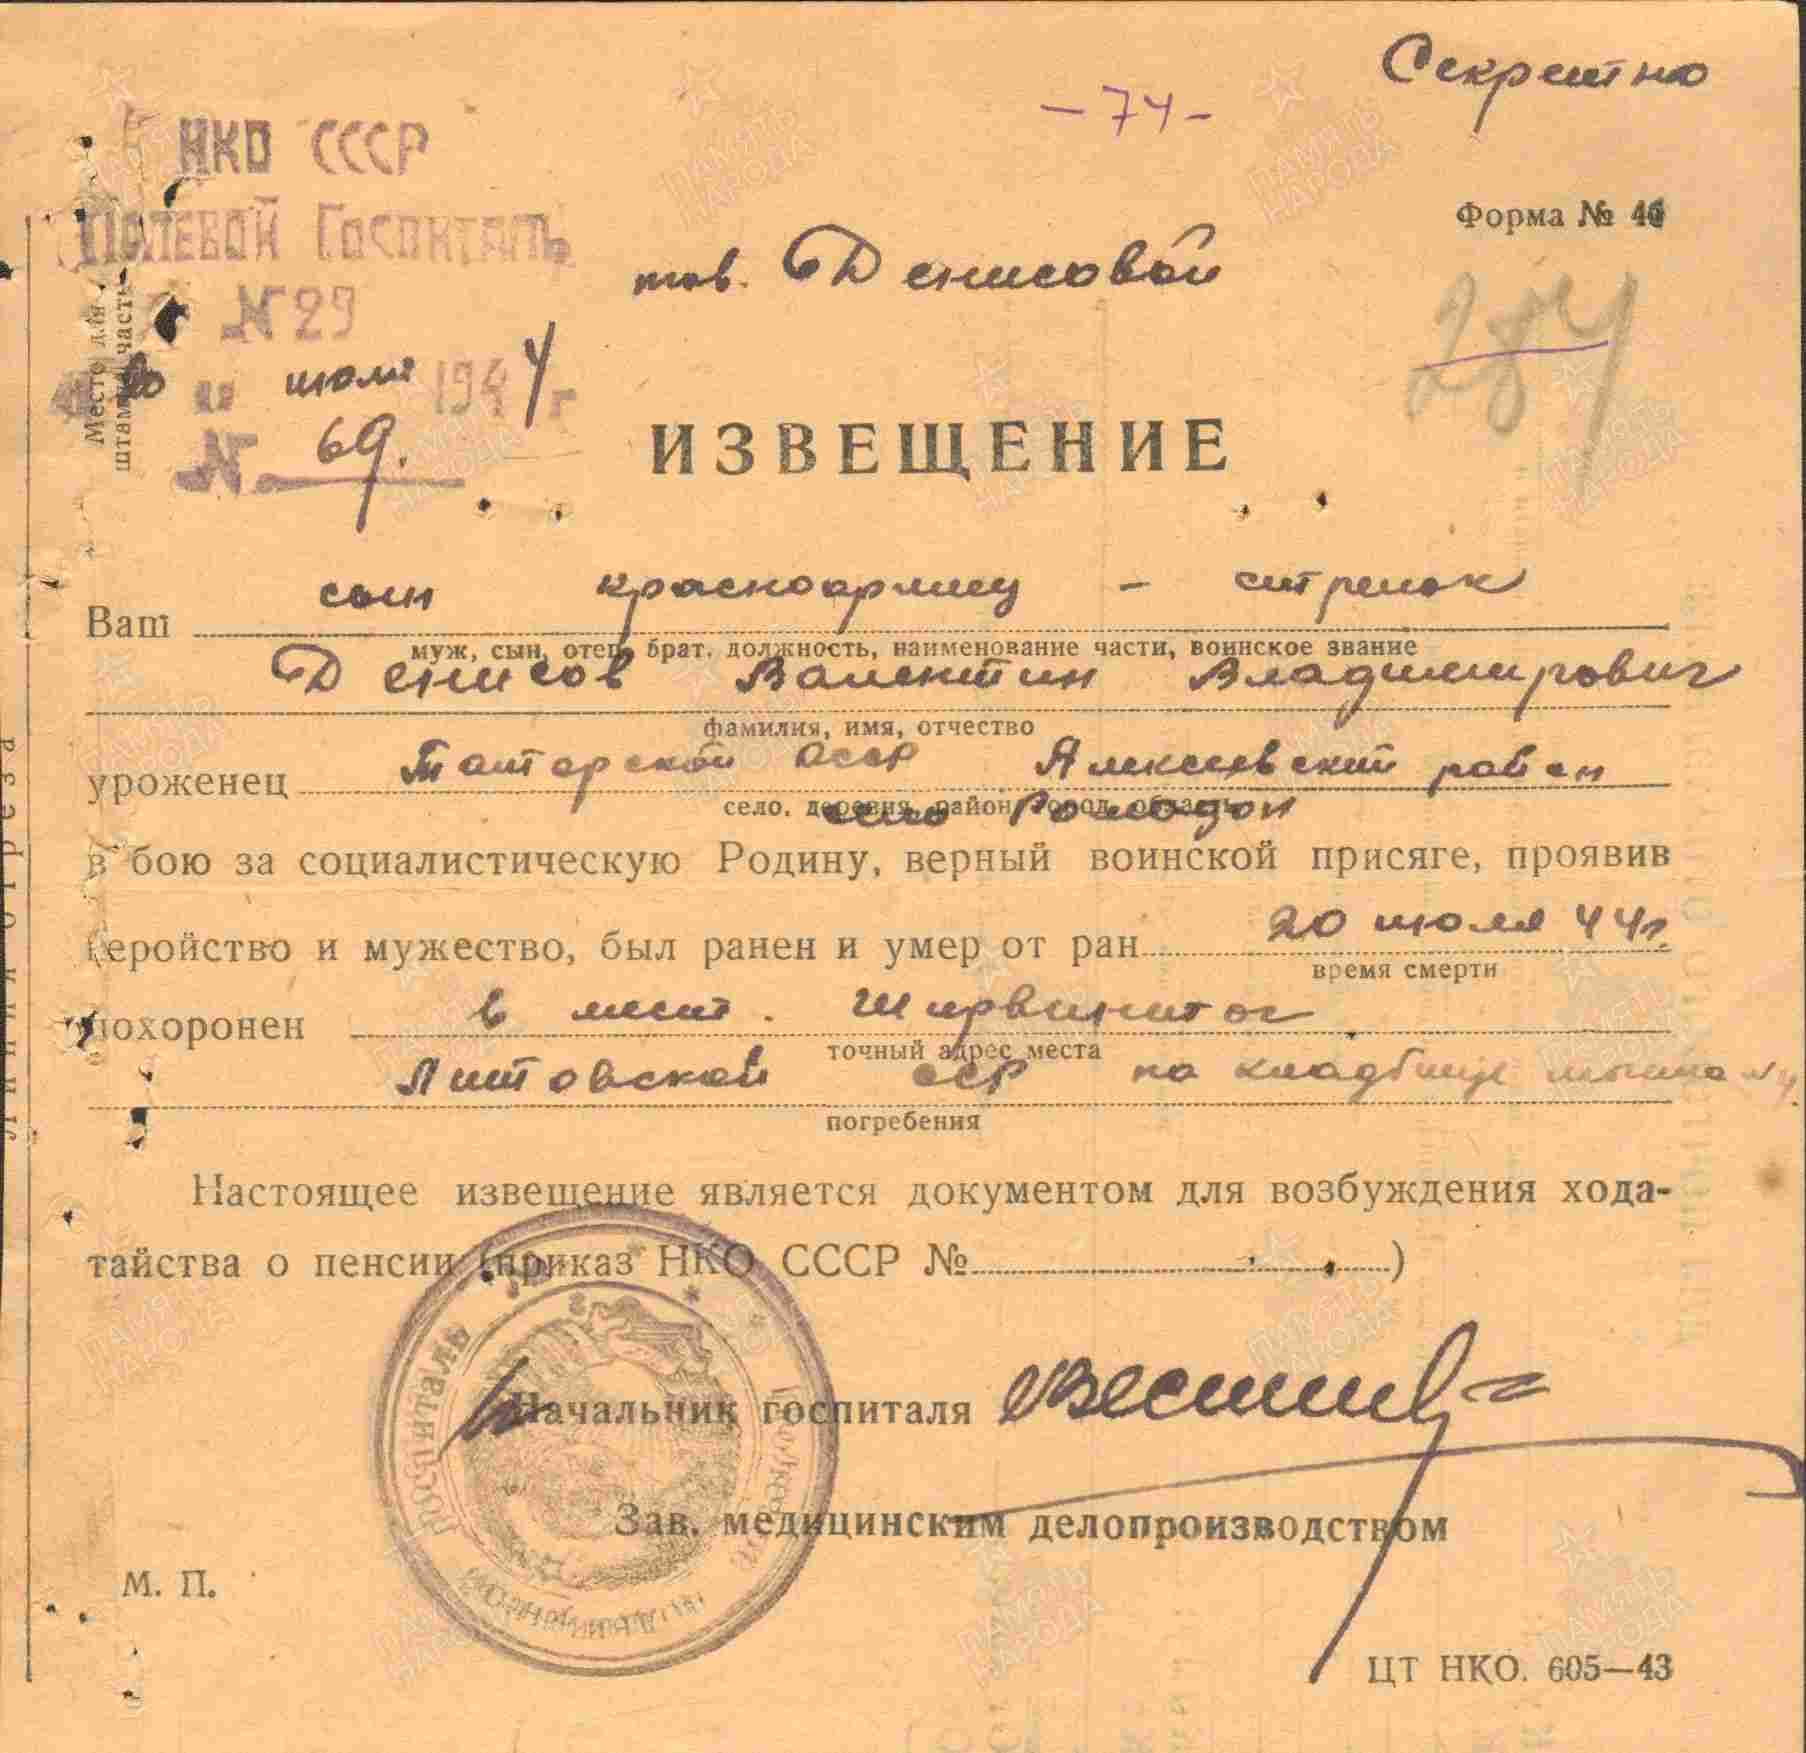 Секретно
-74-
НКО СССР
Полевой Госпиталь
N 29
Форма № 46
тов. Денисовой
284
Место для
штампа часть
20 " июля 1944 г
N 69.
ИЗВЕЩЕНИЕ
Ваш сын красноармеец - стрелок
муж, сын, отец, брат. должность, наименование части, воинское звание
Денисов Валентин Владимирович
фамилия, имя, отчество
уроженец Татарской АССР Алексеевский район
село, деревня, район, город, область
село Ромодан
в бою за социалистическую Родину, верный воинской присяге, проявив
геройство и мужество, был ранен и умер от ран 20 июля 44г.
время смерти
похоронен в мест. Ширвинтос
точный адрес места
Литовской ССР на кладбище могила №4
погребения
Настоящее извещение является документом для возбуждения хода-
тайства о пенсии (приказ НКО СССР № )
Начальник госпиталя
Зав. медицинским делопроизводством
ГОСПИТАЛЬ
М. П.
ЦТ НКО. 605—43
Линия отреза
ПАМЯТЬ НАРОДА